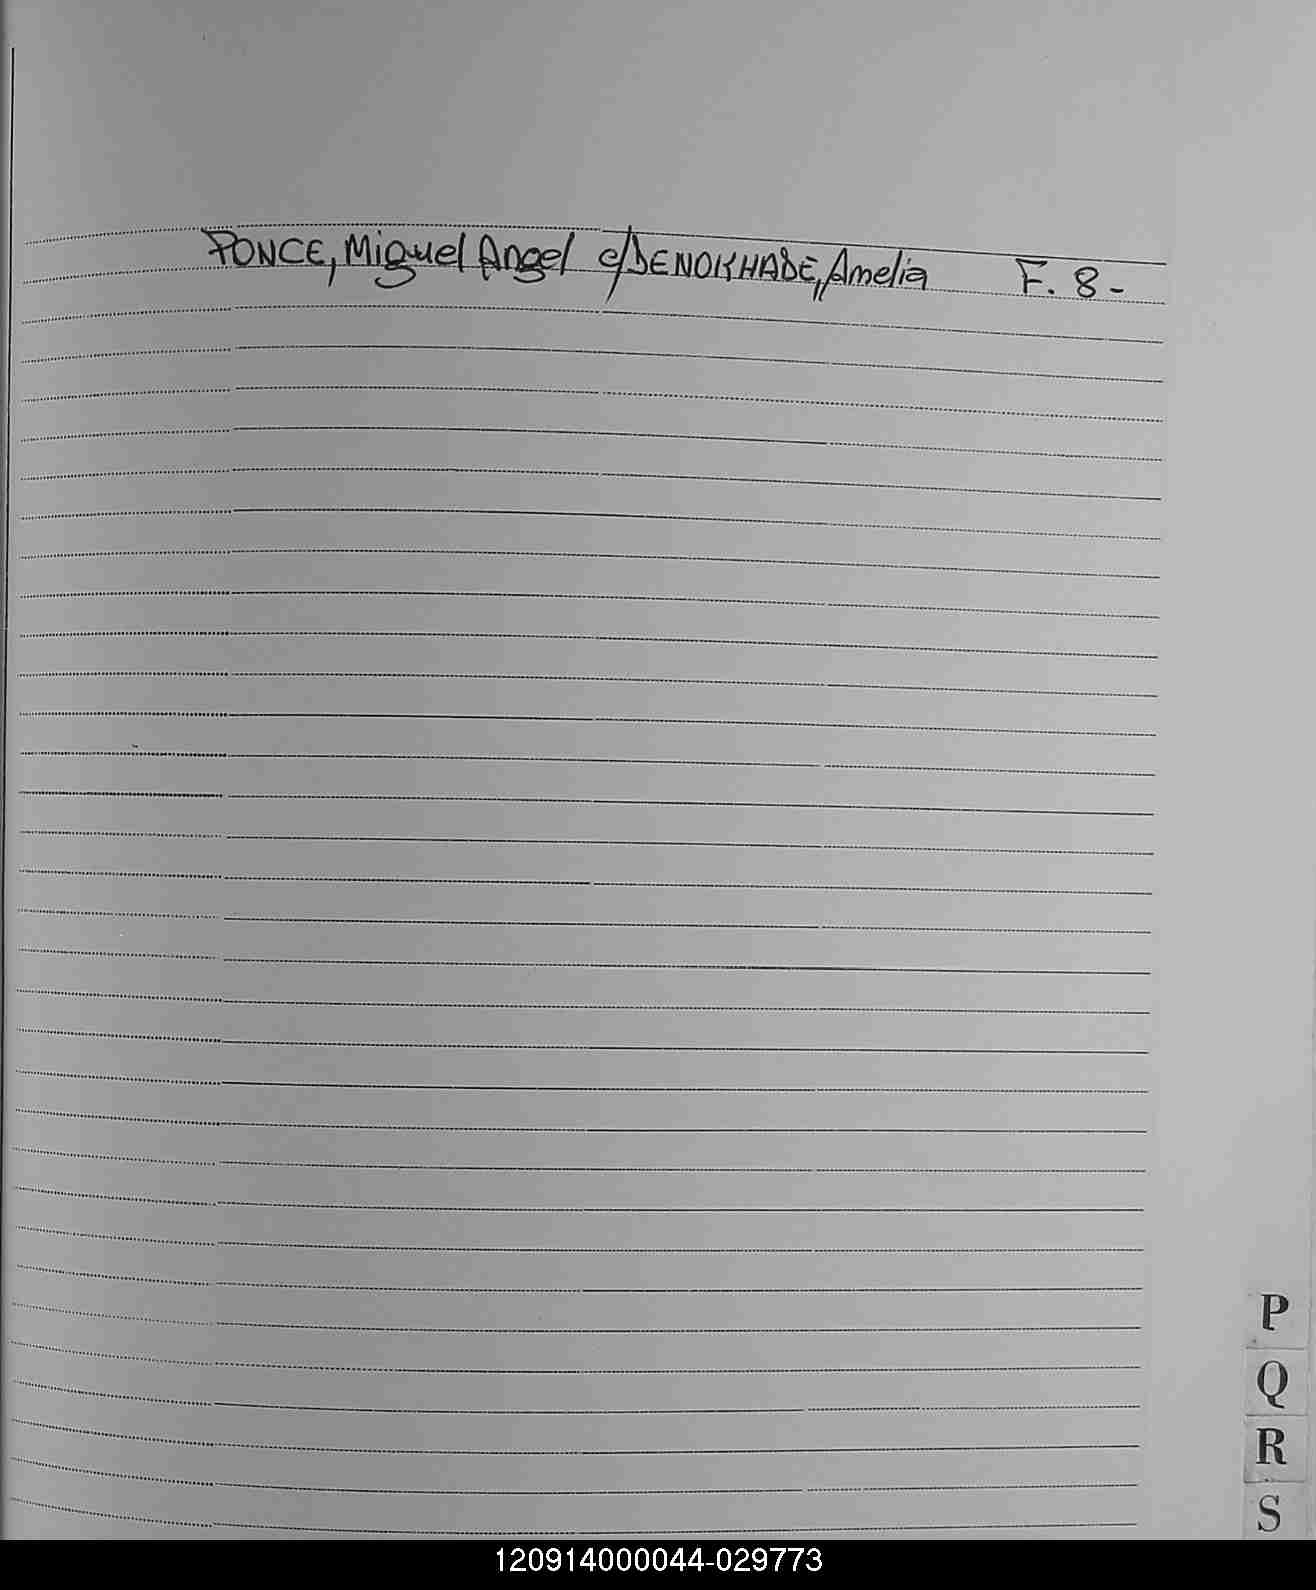 PONCE, Miguel Angel c/DENOKHADE, Amelia F. 8-
P
Q
R
S
120914000044-029773